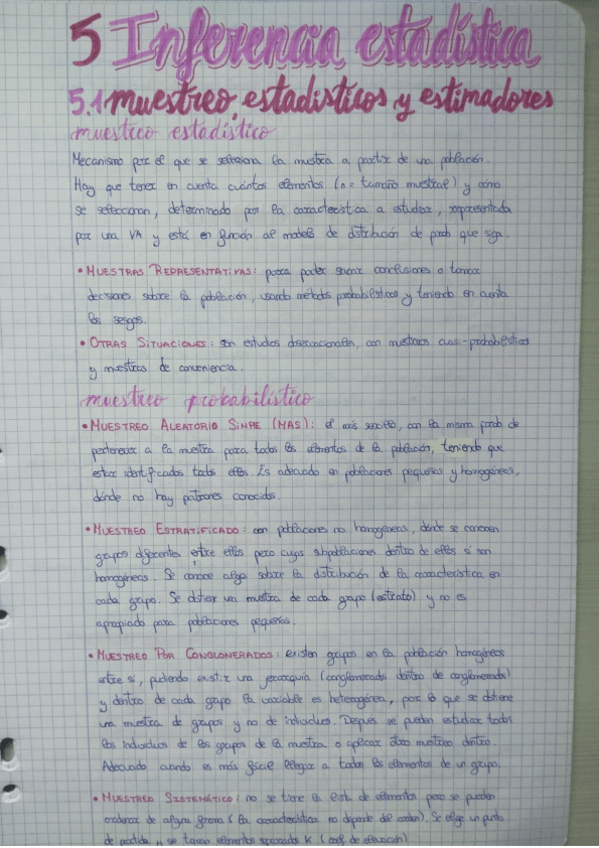 5 Inferencia estadística
5.1 muestreo, estadísticos y estimadores
muestreo estadístico
Mecanismo por el que se selecciona la muestra a partir de una población.
Hay que tener en cuenta cuántos elementos (n = tamaño muestral) y cómo
se seleccionan, determinado por la característica a estudiar, representada
por una VA y está en función al modelo de distribución de prob que siga.
• MUESTRAS REPRESENTATIVAS: para poder sacar conclusiones o tomar
decisiones sobre la población, usando métodos probabilísticos y teniendo en cuenta
los sesgos.
• OTRAS SITUACIONES: son estudios observacionales, con muestras cuasi-probabilísticas
y muestras de conveniencia.
muestreo probabilístico
• MUESTREO ALEATORIO SIMPLE (MAS): el más sencillo, con la misma prob de
pertenecer a la muestra para todos los elementos de la población, teniendo que
estar identificados todos ellos. Es adecuado en poblaciones pequeñas y homogéneas,
dónde no hay patrones conocidos.
• MUESTREO ESTRATIFICADO: con poblaciones no homogéneas, dónde se conocen
grupos diferentes entre ellos pero cuyas subpoblaciones dentro de ellos si son
homogéneas. Se conoce algo sobre la distribución de la característica en
cada grupo. Se obtiene una muestra de cada grupo (estrato) y no es
apropiado para poblaciones pequeñas.
• MUESTREO POR CONGLOMERADOS: existen grupos en la población homogéneos
entre sí, pudiendo existir una jerarquía (conglomerados dentro de conglomerados)
y dentro de cada grupo la variable es heterogénea, por lo que se obtiene
una muestra de grupos y no de individuos. Después se pueden estudiar todos
los individuos de los grupos de la muestra o aplicar otro muestreo dentro.
Adecuado cuando es más fácil llegar a todos los elementos de un grupo.
• MUESTREO SISTEMÁTICO: no se tiene la lista de elementos pero se pueden
ordenar de alguna forma (la característica no depende del orden). Se elige un punto
de partida y se toman elementos separados K (coef. de elevación)